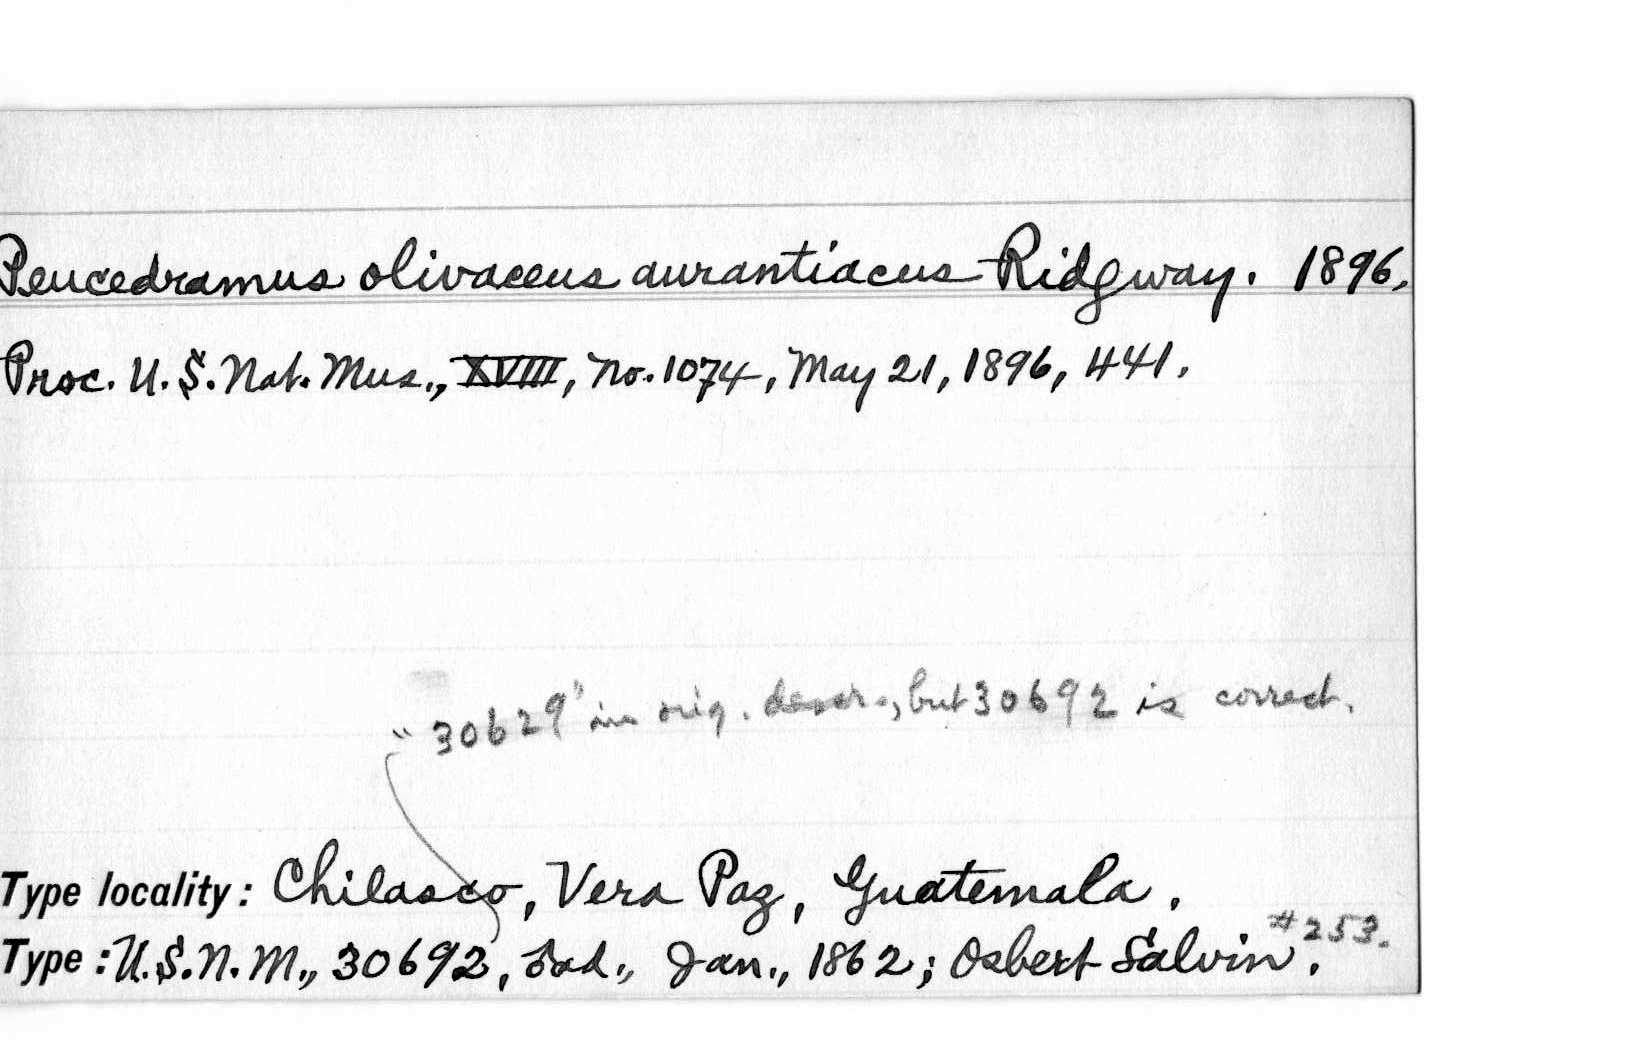 Peucedramus olivaceus aurantiacus Ridgway. 1896.
Proc. U.S. Nat. Mus., XVIII, No. 1074, May 21, 1896, 441.
"30629" in orig. descr., but 30692 is correct.
Type locality: Chilasco, Vera Paz, Guatemala.
#253.
Type: U.S.N.M., 30692, Jan., 1862; Osbert Salvin.